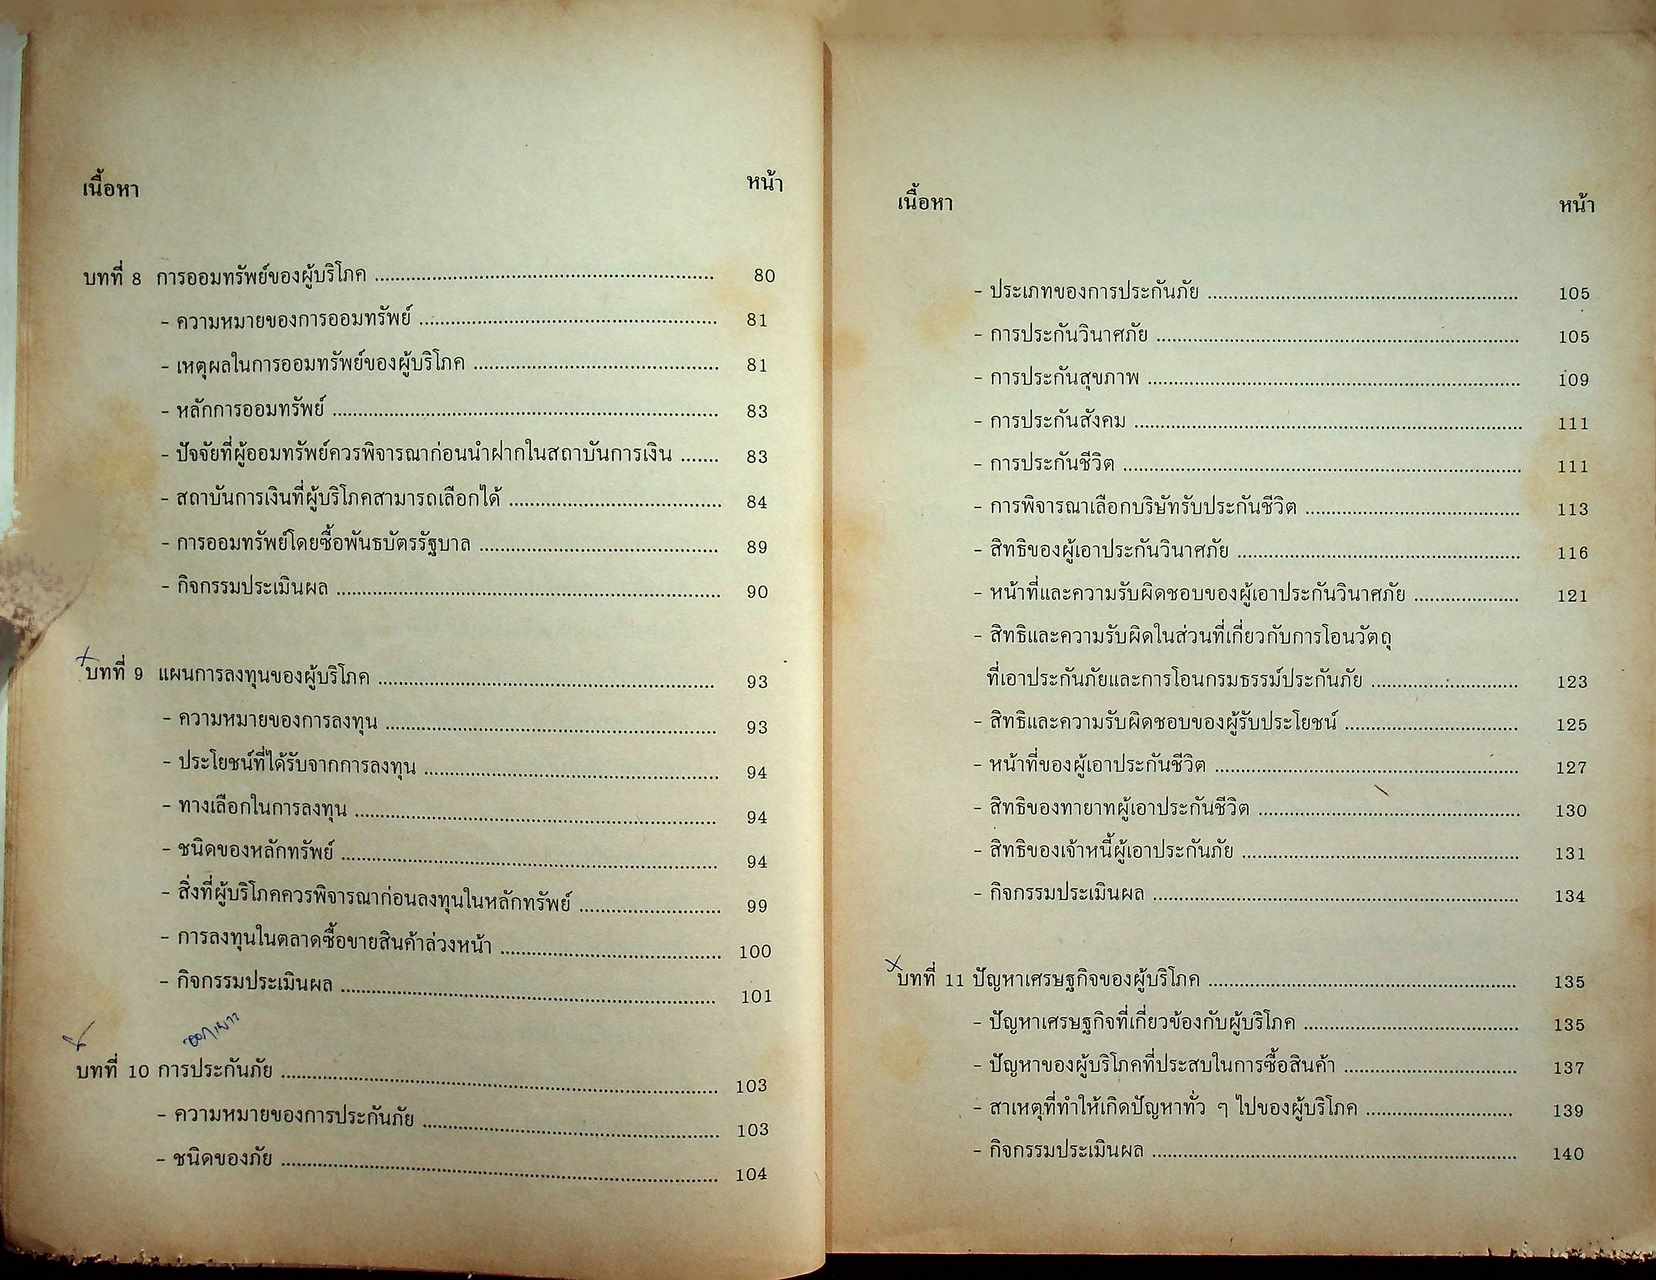 เนื้อหา หน้า
บทที่ 8 การออมทรัพย์ของผู้บริโภค ........ 80
- ความหมายของการออมทรัพย์ ........ 81
- เหตุผลในการออมทรัพย์ของผู้บริโภค ........ 81
- หลักการออมทรัพย์ ........ 83
- ปัจจัยที่ผู้ออมทรัพย์ควรพิจารณาก่อนนำฝากในสถาบันการเงิน ....... 83
- สถาบันการเงินที่ผู้บริโภคสามารถเลือกได้ ........ 84
- การออมทรัพย์โดยซื้อพันธบัตรรัฐบาล ........ 89
- กิจกรรมประเมินผล ........ 90
บทที่ 9 แผนการลงทุนของผู้บริโภค ........ 93
- ความหมายของการลงทุน ........ 93
- ประโยชน์ที่ได้รับจากการลงทุน ........ 94
- ทางเลือกในการลงทุน ........ 94
- ชนิดของหลักทรัพย์ ........ 94
- สิ่งที่ผู้บริโภคควรพิจารณาก่อนลงทุนในหลักทรัพย์ ........ 99
- การลงทุนในตลาดซื้อขายสินค้าล่วงหน้า ........ 100
- กิจกรรมประเมินผล ........ 101
บทที่ 10 การประกันภัย ........ 103
- ความหมายของการประกันภัย ........ 103
- ชนิดของภัย ........ 104
เนื้อหา หน้า
- ประเภทของการประกันภัย ........ 105
- การประกันวินาศภัย ........ 105
- การประกันสุขภาพ ........ 109
- การประกันสังคม ........ 111
- การประกันชีวิต ........ 111
- การพิจารณาเลือกบริษัทรับประกันชีวิต ........ 113
- สิทธิของผู้เอาประกันวินาศภัย ........ 116
- หน้าที่และความรับผิดชอบของผู้เอาประกันวินาศภัย ........ 121
- สิทธิและความรับผิดในส่วนที่เกี่ยวกับการโอนวัตถุ
ที่เอาประกันภัยและการโอนกรมธรรม์ประกันภัย ........ 123
- สิทธิและความรับผิดชอบของผู้รับประโยชน์ ........ 125
- หน้าที่ของผู้เอาประกันชีวิต ........ 127
- สิทธิของทายาทผู้เอาประกันชีวิต ........ 130
- สิทธิของเจ้าหนี้ผู้เอาประกันภัย ........ 131
- กิจกรรมประเมินผล ........ 134
บทที่ 11 ปัญหาเศรษฐกิจของผู้บริโภค ........ 135
- ปัญหาเศรษฐกิจที่เกี่ยวข้องกับผู้บริโภค ........ 135
- ปัญหาของผู้บริโภคที่ประสบในการซื้อสินค้า ........ 137
- สาเหตุที่ทำให้เกิดปัญหาทั่ว ๆ ไปของผู้บริโภค ........ 139
- กิจกรรมประเมินผล ........ 140